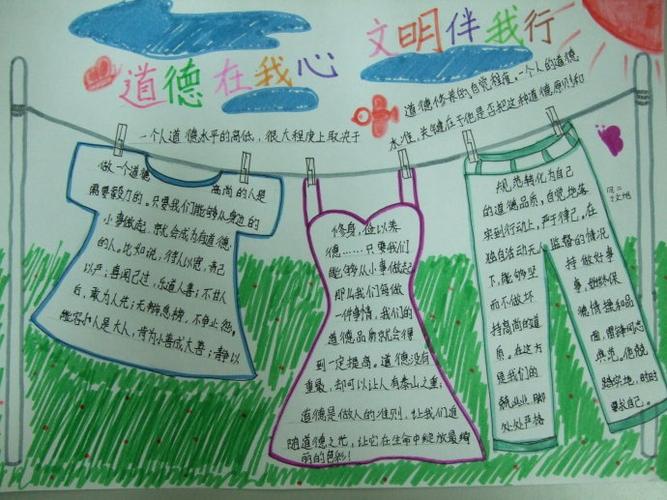 道德在我心 文明伴我行
一个人道德水平的高低，很大程度上取决于
道德修养的自觉程度。一个人的道德
水准，关键在于他是否把这种道德原则和
做一个道德
高尚的人是
需要毅力的。只要我们能够从身边的
小事做起，就会成为有道德
的人。比如说，待人以宽，责己
以严；喜闻己过，乐道人善；不甘人
后，敢为人先；无制怒
不争
能容小人是大人，肯为小善成大善；静以
修身，俭以养
德……只要我们
能够从小事做起
那么我们每做
一件事情，我们的
道德品质就会得
到一定提高。道德没有
重量，却可以让人有泰山之重；
道德是做人的准则，让我们追
随道德之光，让它在生命中绽放最绚
丽的色彩！
规范转化为自己
的道德品质，自觉地落
实到行动上，严于律己。在
独自活动无人监督的情况
下，能够坚持做好事
而不做坏事，始终保
持高尚的道德情操和品
质。在这方面，雷锋同志
是我们的典范。他兢
兢业业，脚踏实地，时时
处处严格要求自己。